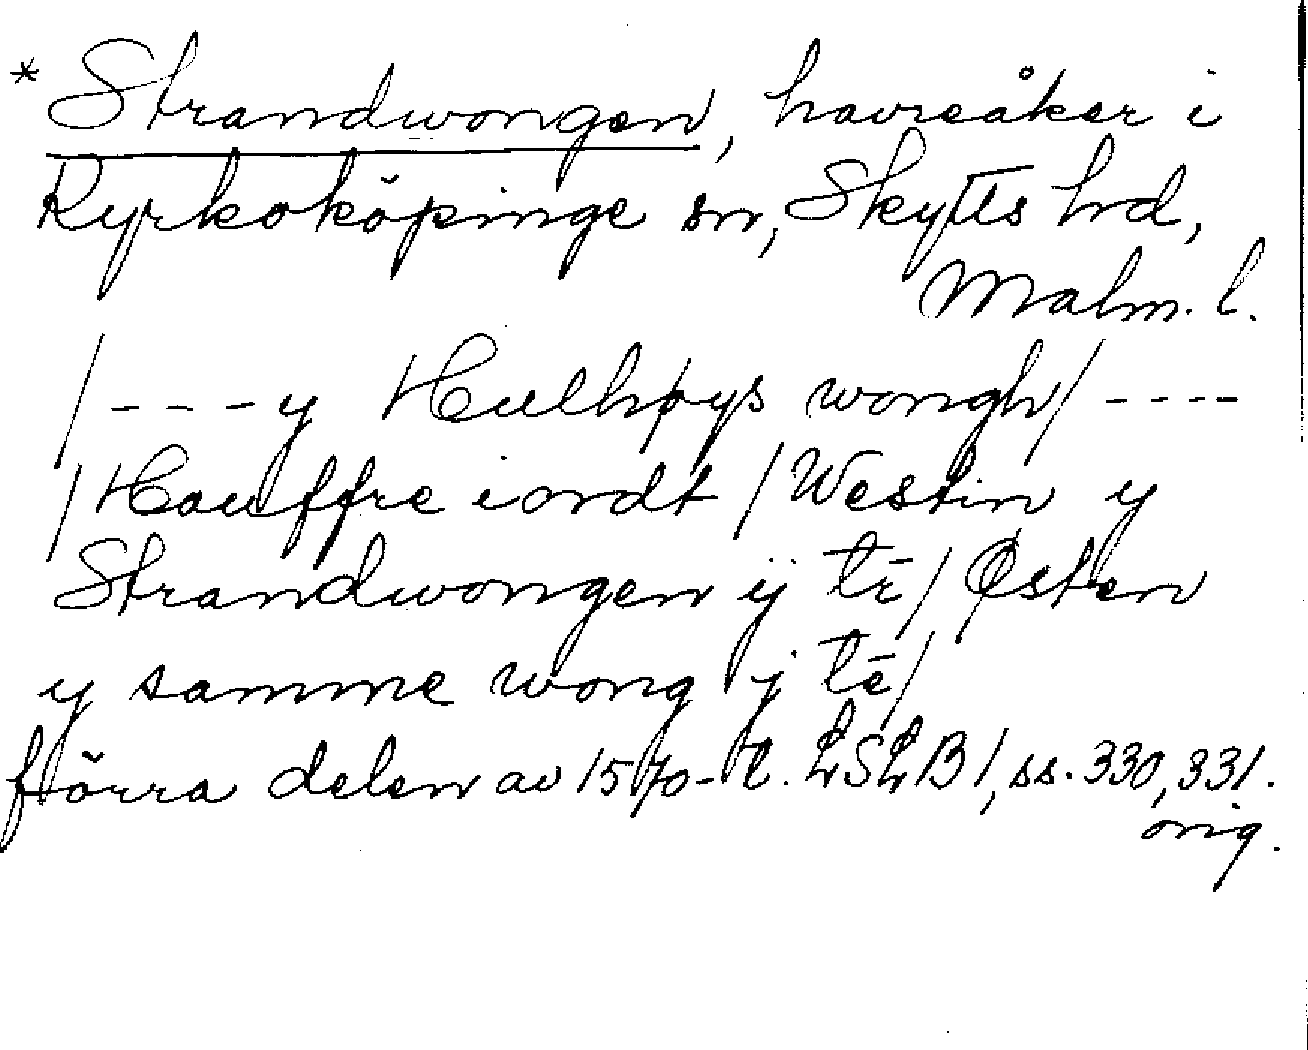 * Strandwongen, havreåker i
Kyrkoköpinge sn, Skytts hd,
Malm. l.
/---y Hulhøys wongh/----
/Hauffre iordt/Westen y
Strandwongen ij tē/Østen
y samme wong j tē/
förra delen av 1570-t. LSLB 1, ss. 330, 331.
orig.